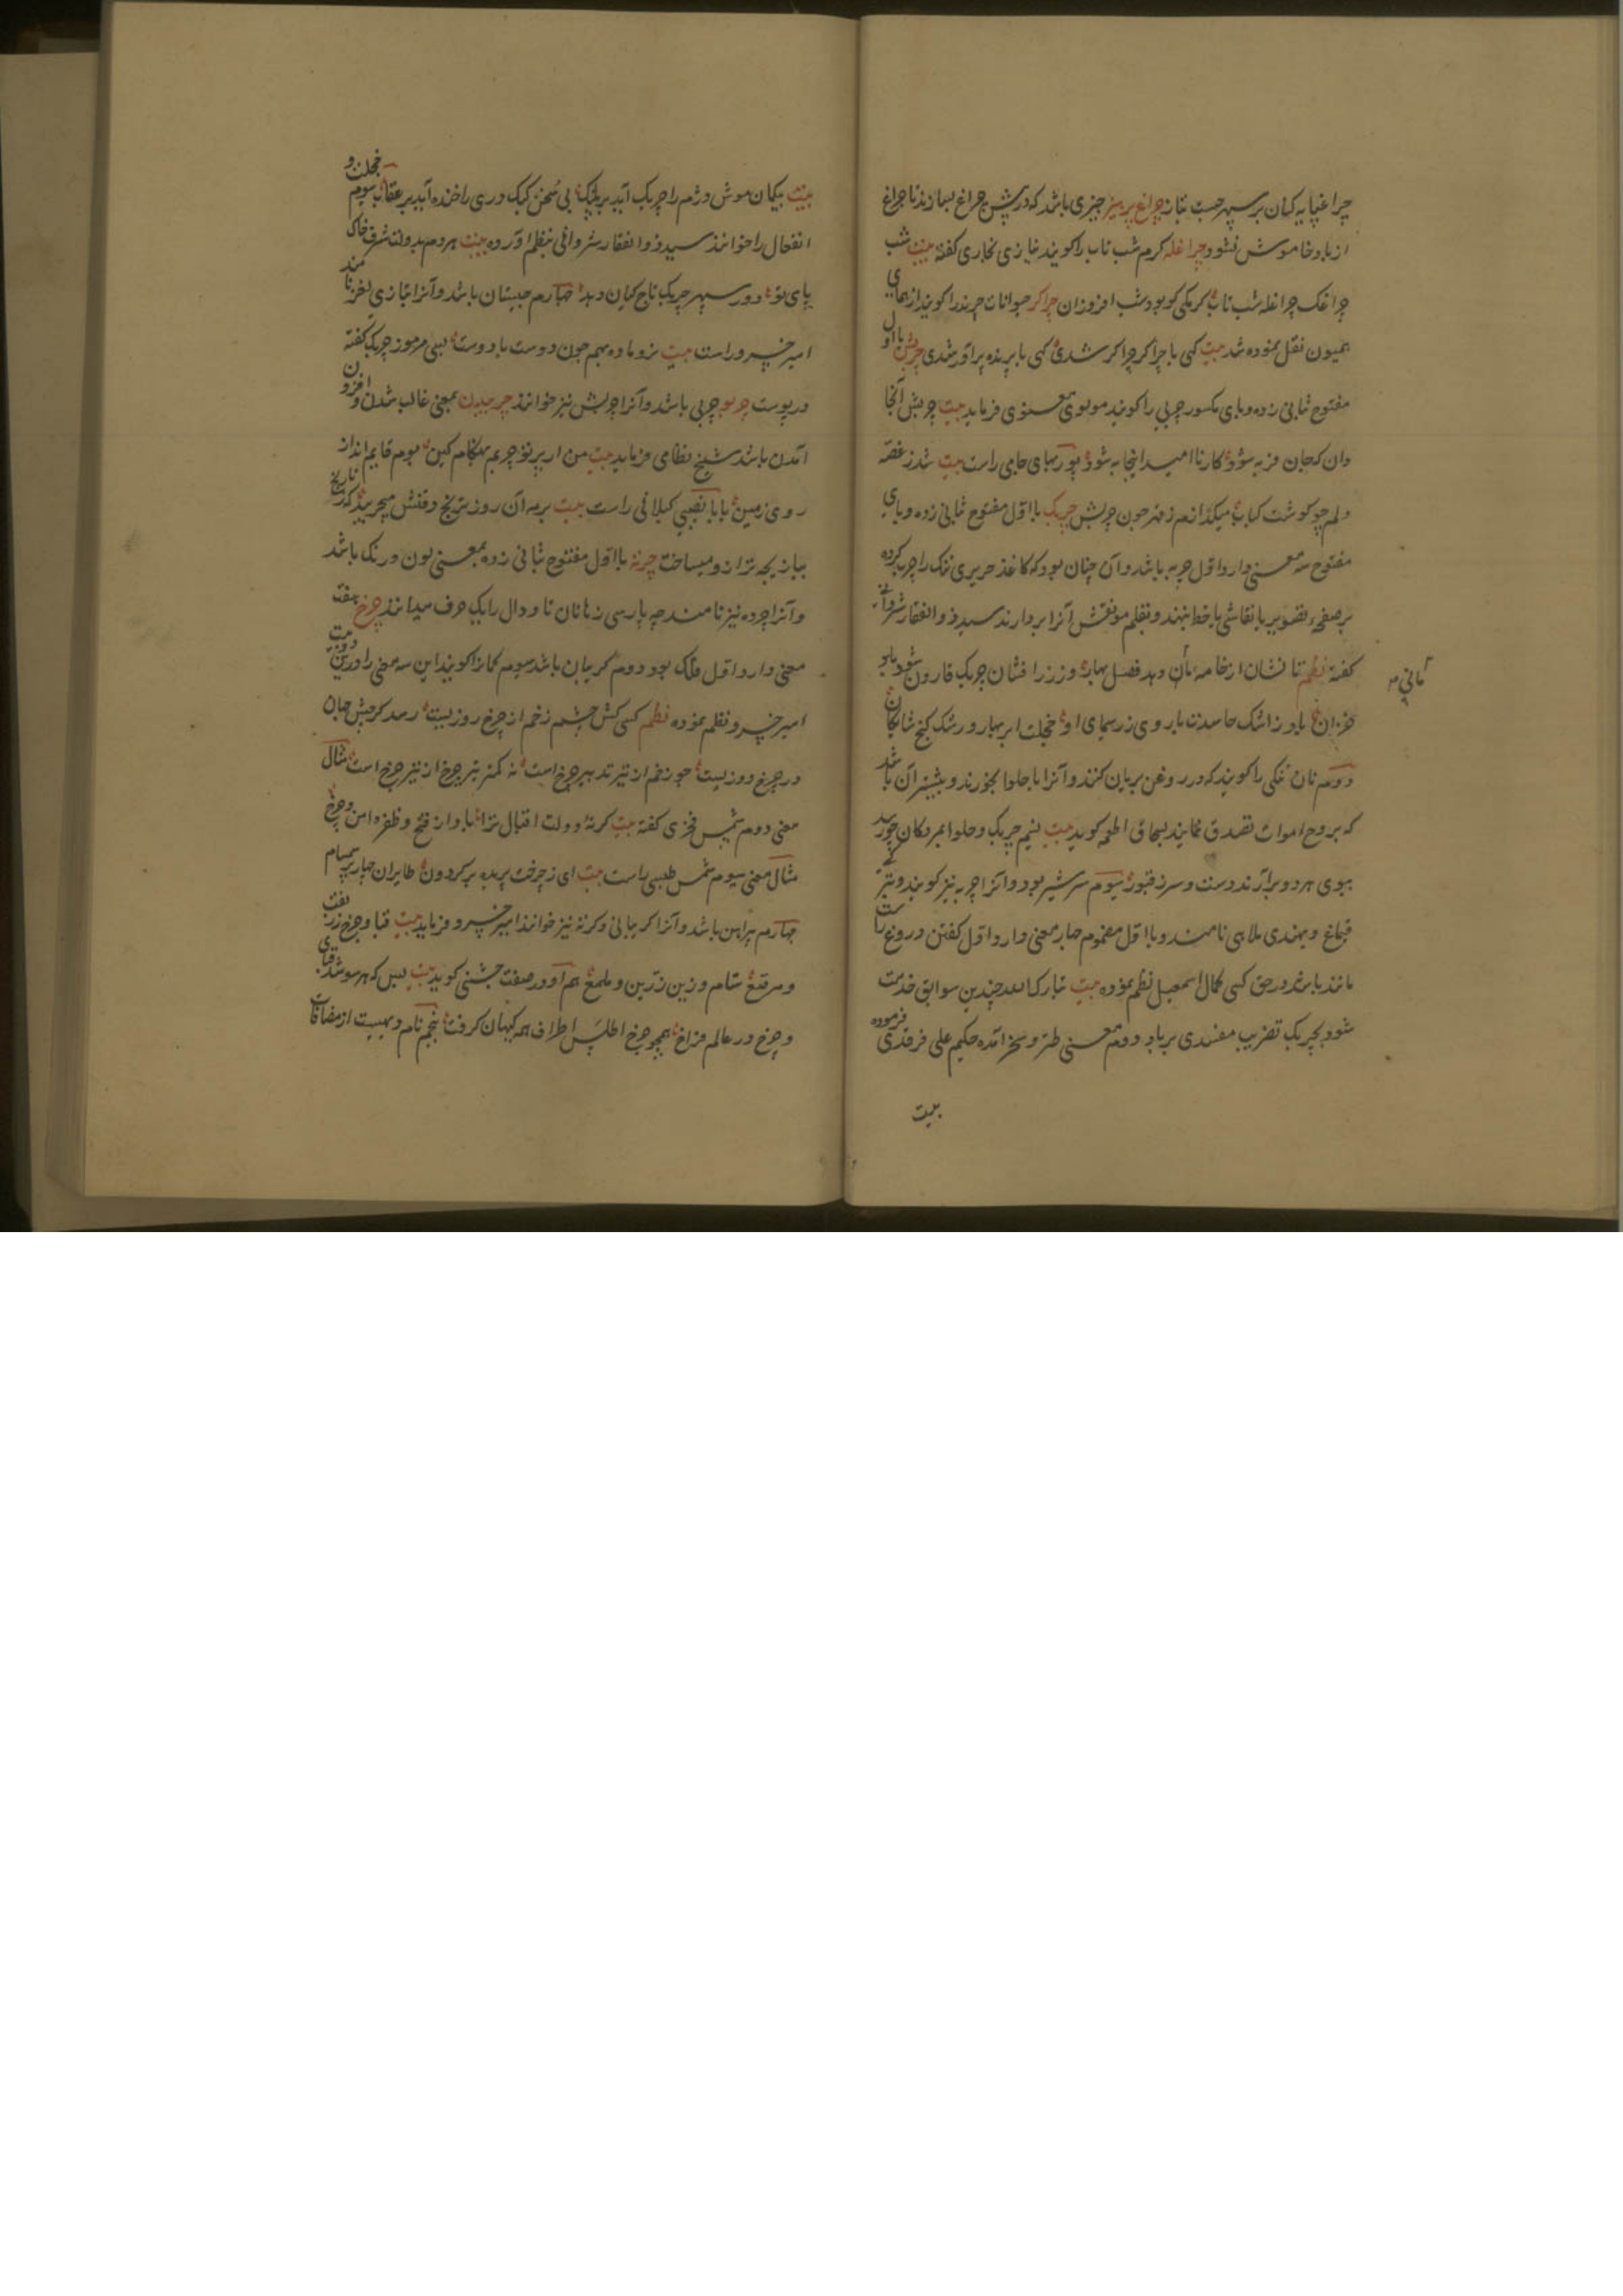 چراغپایه کیان بر سپهر جست نیاز چراغ پرهیز چیزی باشد که در پیش چراغ بسازند تا چراغ
از باد خاموش نشود چراغله کرم شب تاب را کویند غازی بخاری کفته بیت شب
چراغک چراغله شب تاب کرمکی کو بود شب افروزان چراکر حیوانات چرنده را کویند از همای
همیون نقل نموده شد بیت کهی با چراکر چراکر شدی کهی با پرنده برآور شدی چربش با اول
مفتوح ثانی زده و بای مکسور چربی را کویند مولوی معنوی فرماید بیت چربش آنجا
دان که جان فربه شود کار نا امید اینجا به شود پوربهای جامی راست بیت شد ز غصه
دلم چو کوشت کباب میکدازم ز قهر چون چربش چربک با اول مفتوح ثانی زده و بای
مفتوح سه معنی دارد اول چربه باشد و آن چنان بود که کاغذ حریری تنک را چرب کرده
بر صفحه تصویر یا نقاشی یا خط نهند و بقلم مو نقش آنرا بردارند سید ذوالفقار شروانی
کفته نظم تا نشان از خامه مانی دهد فصل بهار وز زر افشان چربک قارون شود باد
خزان باد ز اشک حاسدت با روی زر سیمای او خجلت ابر بهار و رشک کنج شایکان
دوم نان تنکی را کویند که در روغن بریان کنند و آنرا با حلوا بخورند و بیشتر آن باشد
که بروح اموات تصدق نمایند بسحاق اطعمه کوید بیت نیم چربک و حلوا بمردکان چو رسید
ببوی هر دو برآرند دست و سر ز قبور سیوم سر شیر بود و آنرا چربه نیز کویند و بترکی
قیماغ و بهندی ملایی نامند و با اول مضموم چهار معنی دارد اول کفتن دروغ راست
مانند باشد در حق کسی کمال اسمعیل نظم نموده بیت تبارک الله چندین سوابق خدمت
شود بچربک تضریب مفسدی برباد دوم بمعنی طنز و سخر آمده حکیم علی فرقدی فرموده
بیت
بیت بیکمان موش دژم را چربک آید بر پلنک بی سخن کبک دری را خنده آید بر عقاب سوم خجلت و
انفعال را خوانند سید ذوالفقار شروانی بنظم آورده بیت هر دم بدولت شرف خاک
پای تو دور سپهر چربک تاج کیان دهد چهارم چیستان باشد و آنرا بتازی لغز نامند
امیر خسرو راست بیت نر و ماده بهم چون دوست با دوست بسی مرموز چربک کفته
در پوست چربو چربی باشد و آنرا چربش نیز خوانند چربیدن بمعنی غالب شدن و افزون
آمدن باشد شیخ نظامی فرماید بیت من ار بر تو چربم بهنکام کین بوم قایم انداز
روی زمین بابا نصیبی کیلانی راست بیت برمه آن روز بتاریخ وقتش میچربید که در تاریخ
ببازیچه ترازو میساخت چرته با اول مفتوح ثانی زده بمعنی لون و رنک باشد
و آنرا چرده نیز نامند چه پارسی زبانان تا و دال را یک حرف میدانند چرخ هفت
معنی دارد اول فلک بود دوم کریبان باشد سوم کمانرا کویند این سه معنی را در این دو بیت
امیر خسرو نظم نموده نظم کسی کش چشم زخم از چرخ روزیست رسد کر چیش جان
در چرخ دوزیست چو زخم از تیر تدبیر چرخ است نه کمتر تیر چرخ از تیر چرخ است مثال
معنی دوم شمس فخری کفته بیت کرته دولت اقبال ترا باد از فتح و ظفر دامن و چرخ
مثال معنی سیوم شمس طبسی راست بیت ای ز چرخت پریده بر کردون طایران چهار پر سهام
چهارم پیراهن باشد و آنرا کریبانی و کرته نیز خوانند امیر خسرو فرماید بیت قبا و چرخ زربفت
و مرقع ستام و زین زرین و ملمع هم او در صفت جشنی کوید بیت بس که هر سو شد قبای
و چرخ در عالم فراخ همچو چرخ اطلس اطراف همه کیهان کرفت پنجم نام دهیست از مضافات